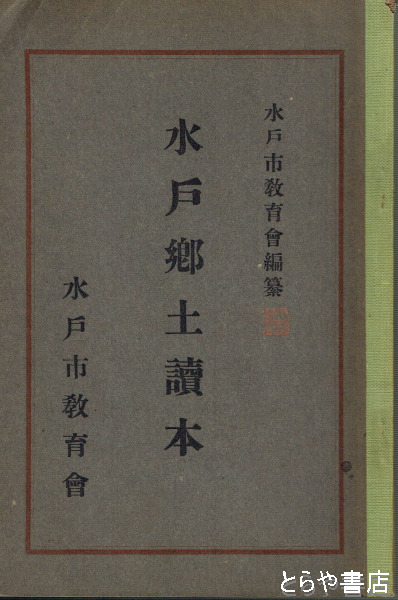 水戸市教育會編纂
水戸鄕土讀本
水戸市教育會
とらや書店